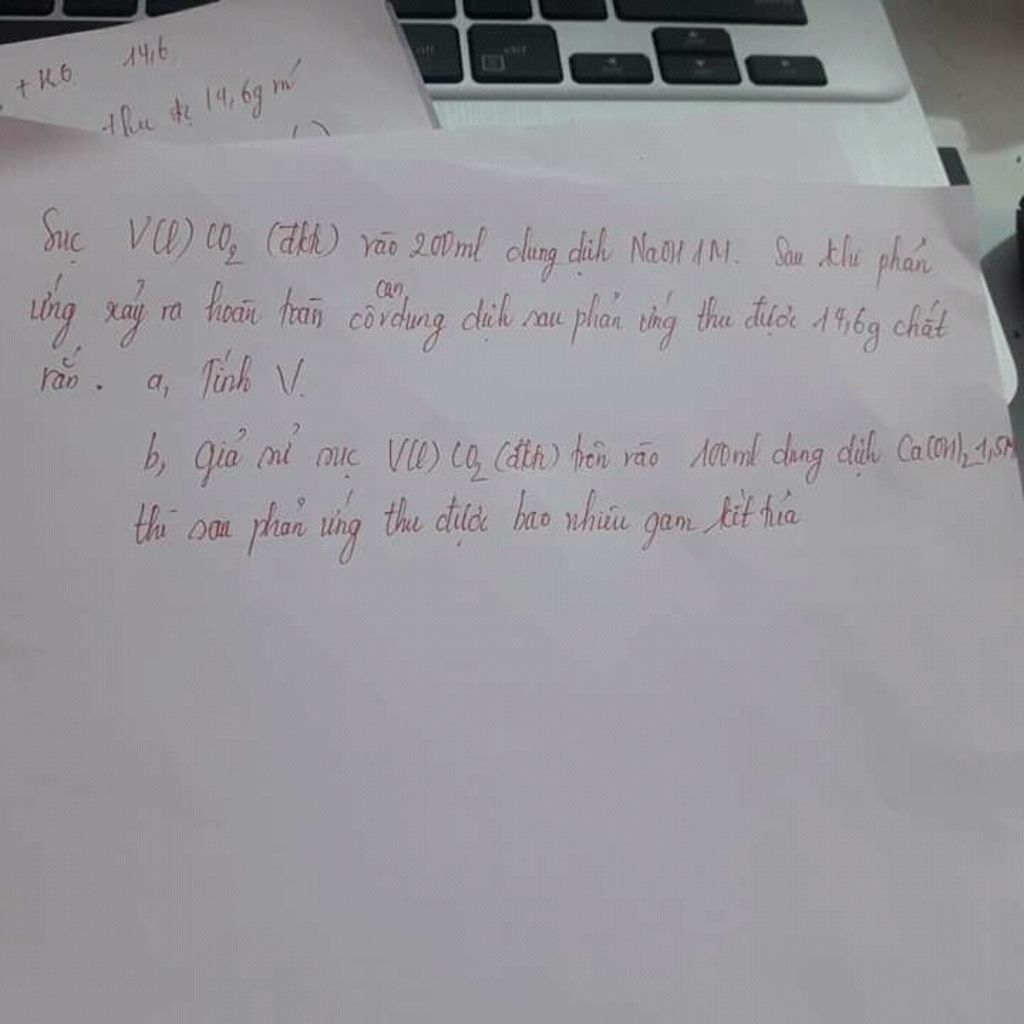 14,6
+ KO
thu đc 14,6g m
Sục V(l) CO2 (đkh) vào 200ml dung dịch NaOH 1M. Sau khi phản
ứng xảy ra hoàn toàn cô cạn dung dịch sau phản ứng thu được 14,6g chất
rắn. a, Tính V.
b, Giả sử sục V(l) CO2 (đkh) trên vào 100ml dung dịch Ca(OH)2 1,5M
thì sau phản ứng thu được bao nhiêu gam kết tủa